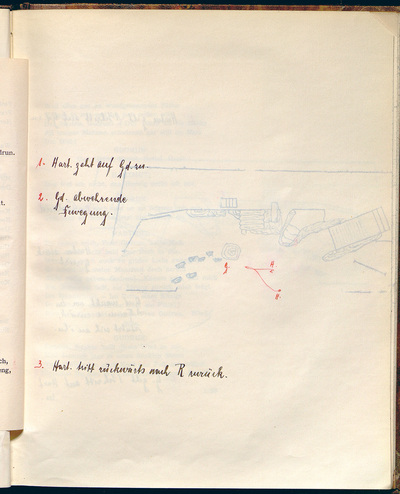 drun.
1. Hart. geht auf Gd. zu.
t.
2. Gd. abwehrende
Bewegung.
g.
H
H.
3. Hart. tritt rückwärts nach R zurück.
ch,
ng,